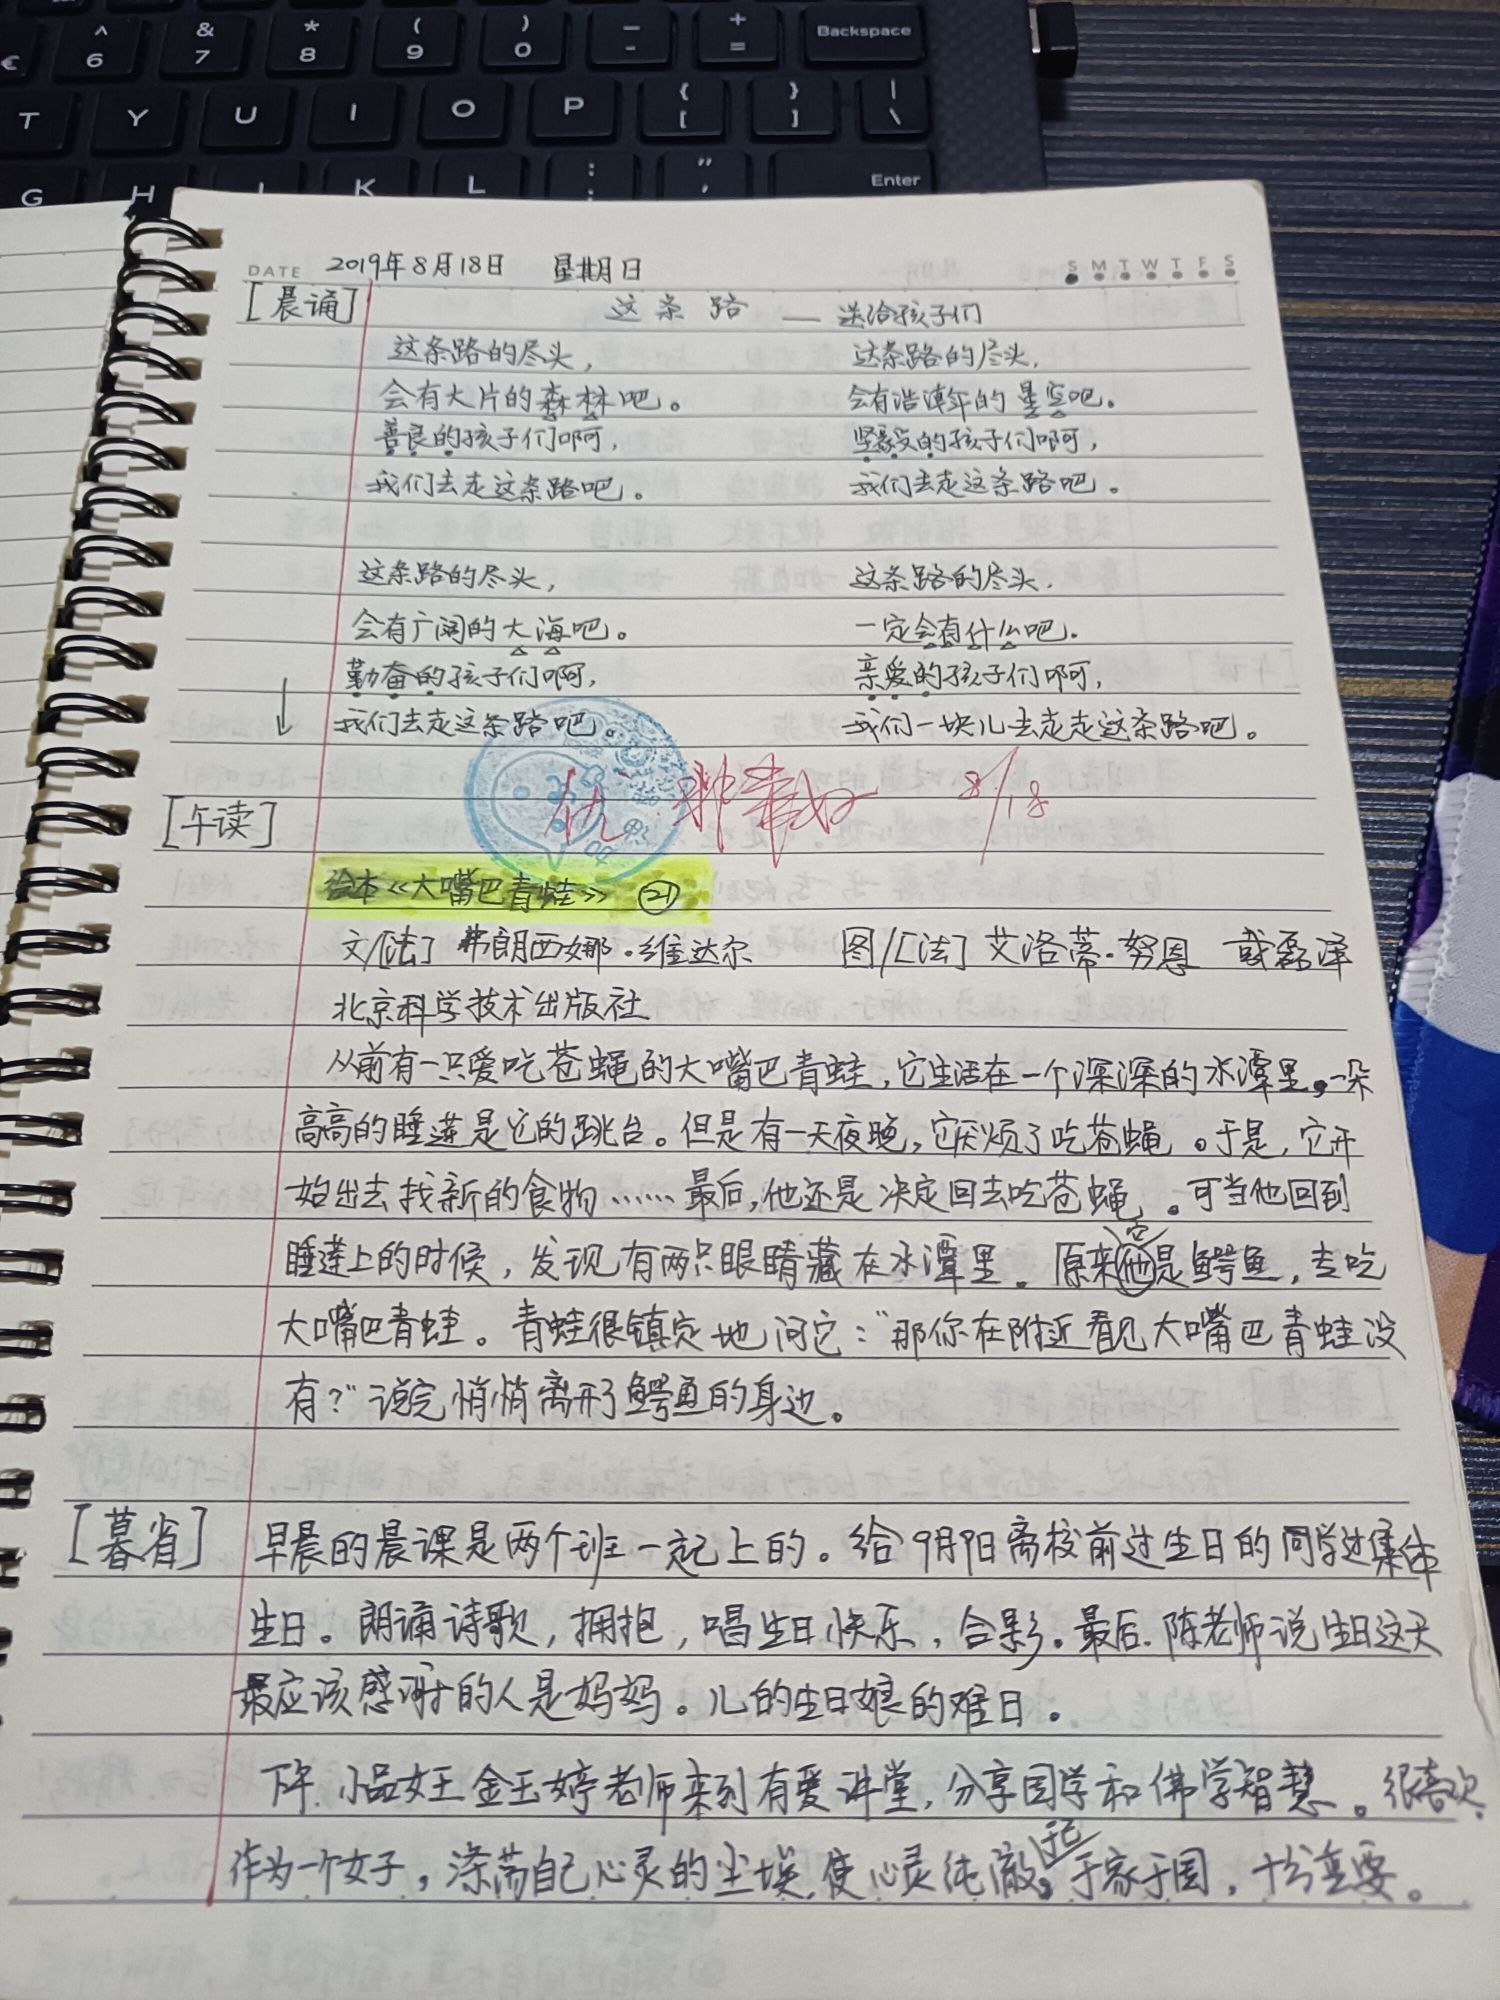 ^ & * ( ) _ +
€ 6 7 8 9 0 - = Backspace
T Y U I O P { [ } ] | \
G H J K L : ; " ' Enter
DATE 2019年8月18日 星期日 S M T W T F S
[晨诵] 这条路 — 送给孩子们
这条路的尽头，
会有大片的森林吧。
善良的孩子们啊，
我们去走这条路吧。
这条路的尽头，
会有广阔的大海吧。
勤奋的孩子们啊，
我们去走这条路吧。
这条路的尽头，
会有浩瀚的星空吧。
坚毅的孩子们啊，
我们去走这条路吧。
这条路的尽头，
一定会有什么吧。
亲爱的孩子们啊，
我们一块儿去走走这条路吧。
优 8/18
[午读]
绘本《大嘴巴青蛙》 21
文/[法] 弗朗西娜·维达尔 图/[法] 艾洛蒂·努恩 戴磊泽
北京科学技术出版社
从前有一只爱吃苍蝇的大嘴巴青蛙，它生活在一个深深的水潭里。一朵
高高的睡莲是它的跳台。但是有一天夜晚，它厌烦了吃苍蝇。于是，它开
始出去找新的食物……最后，他还是决定回去吃苍蝇。可当他回到
睡莲上的时候，发现有两只眼睛藏在水潭里。原来它是鳄鱼，去吃
大嘴巴青蛙。青蛙很镇定地问它：“那你在附近看见大嘴巴青蛙没
有？”说完悄悄离开了鳄鱼的身边。
[暮省] 早晨的晨课是两个班一起上的。给9月9日离校前过生日的同学过集体
生日。朗诵诗歌，拥抱，唱生日快乐，合影。最后，陈老师说生日这天
最应该感谢的人是妈妈。儿的生日娘的难日。
下午，小品女王金玉婷老师来到有爱讲堂，分享国学和佛学智慧。很喜欢，
作为一个女子，涤荡自己心灵的尘埃，使心灵纯澈，于己于家于国，十分重要。